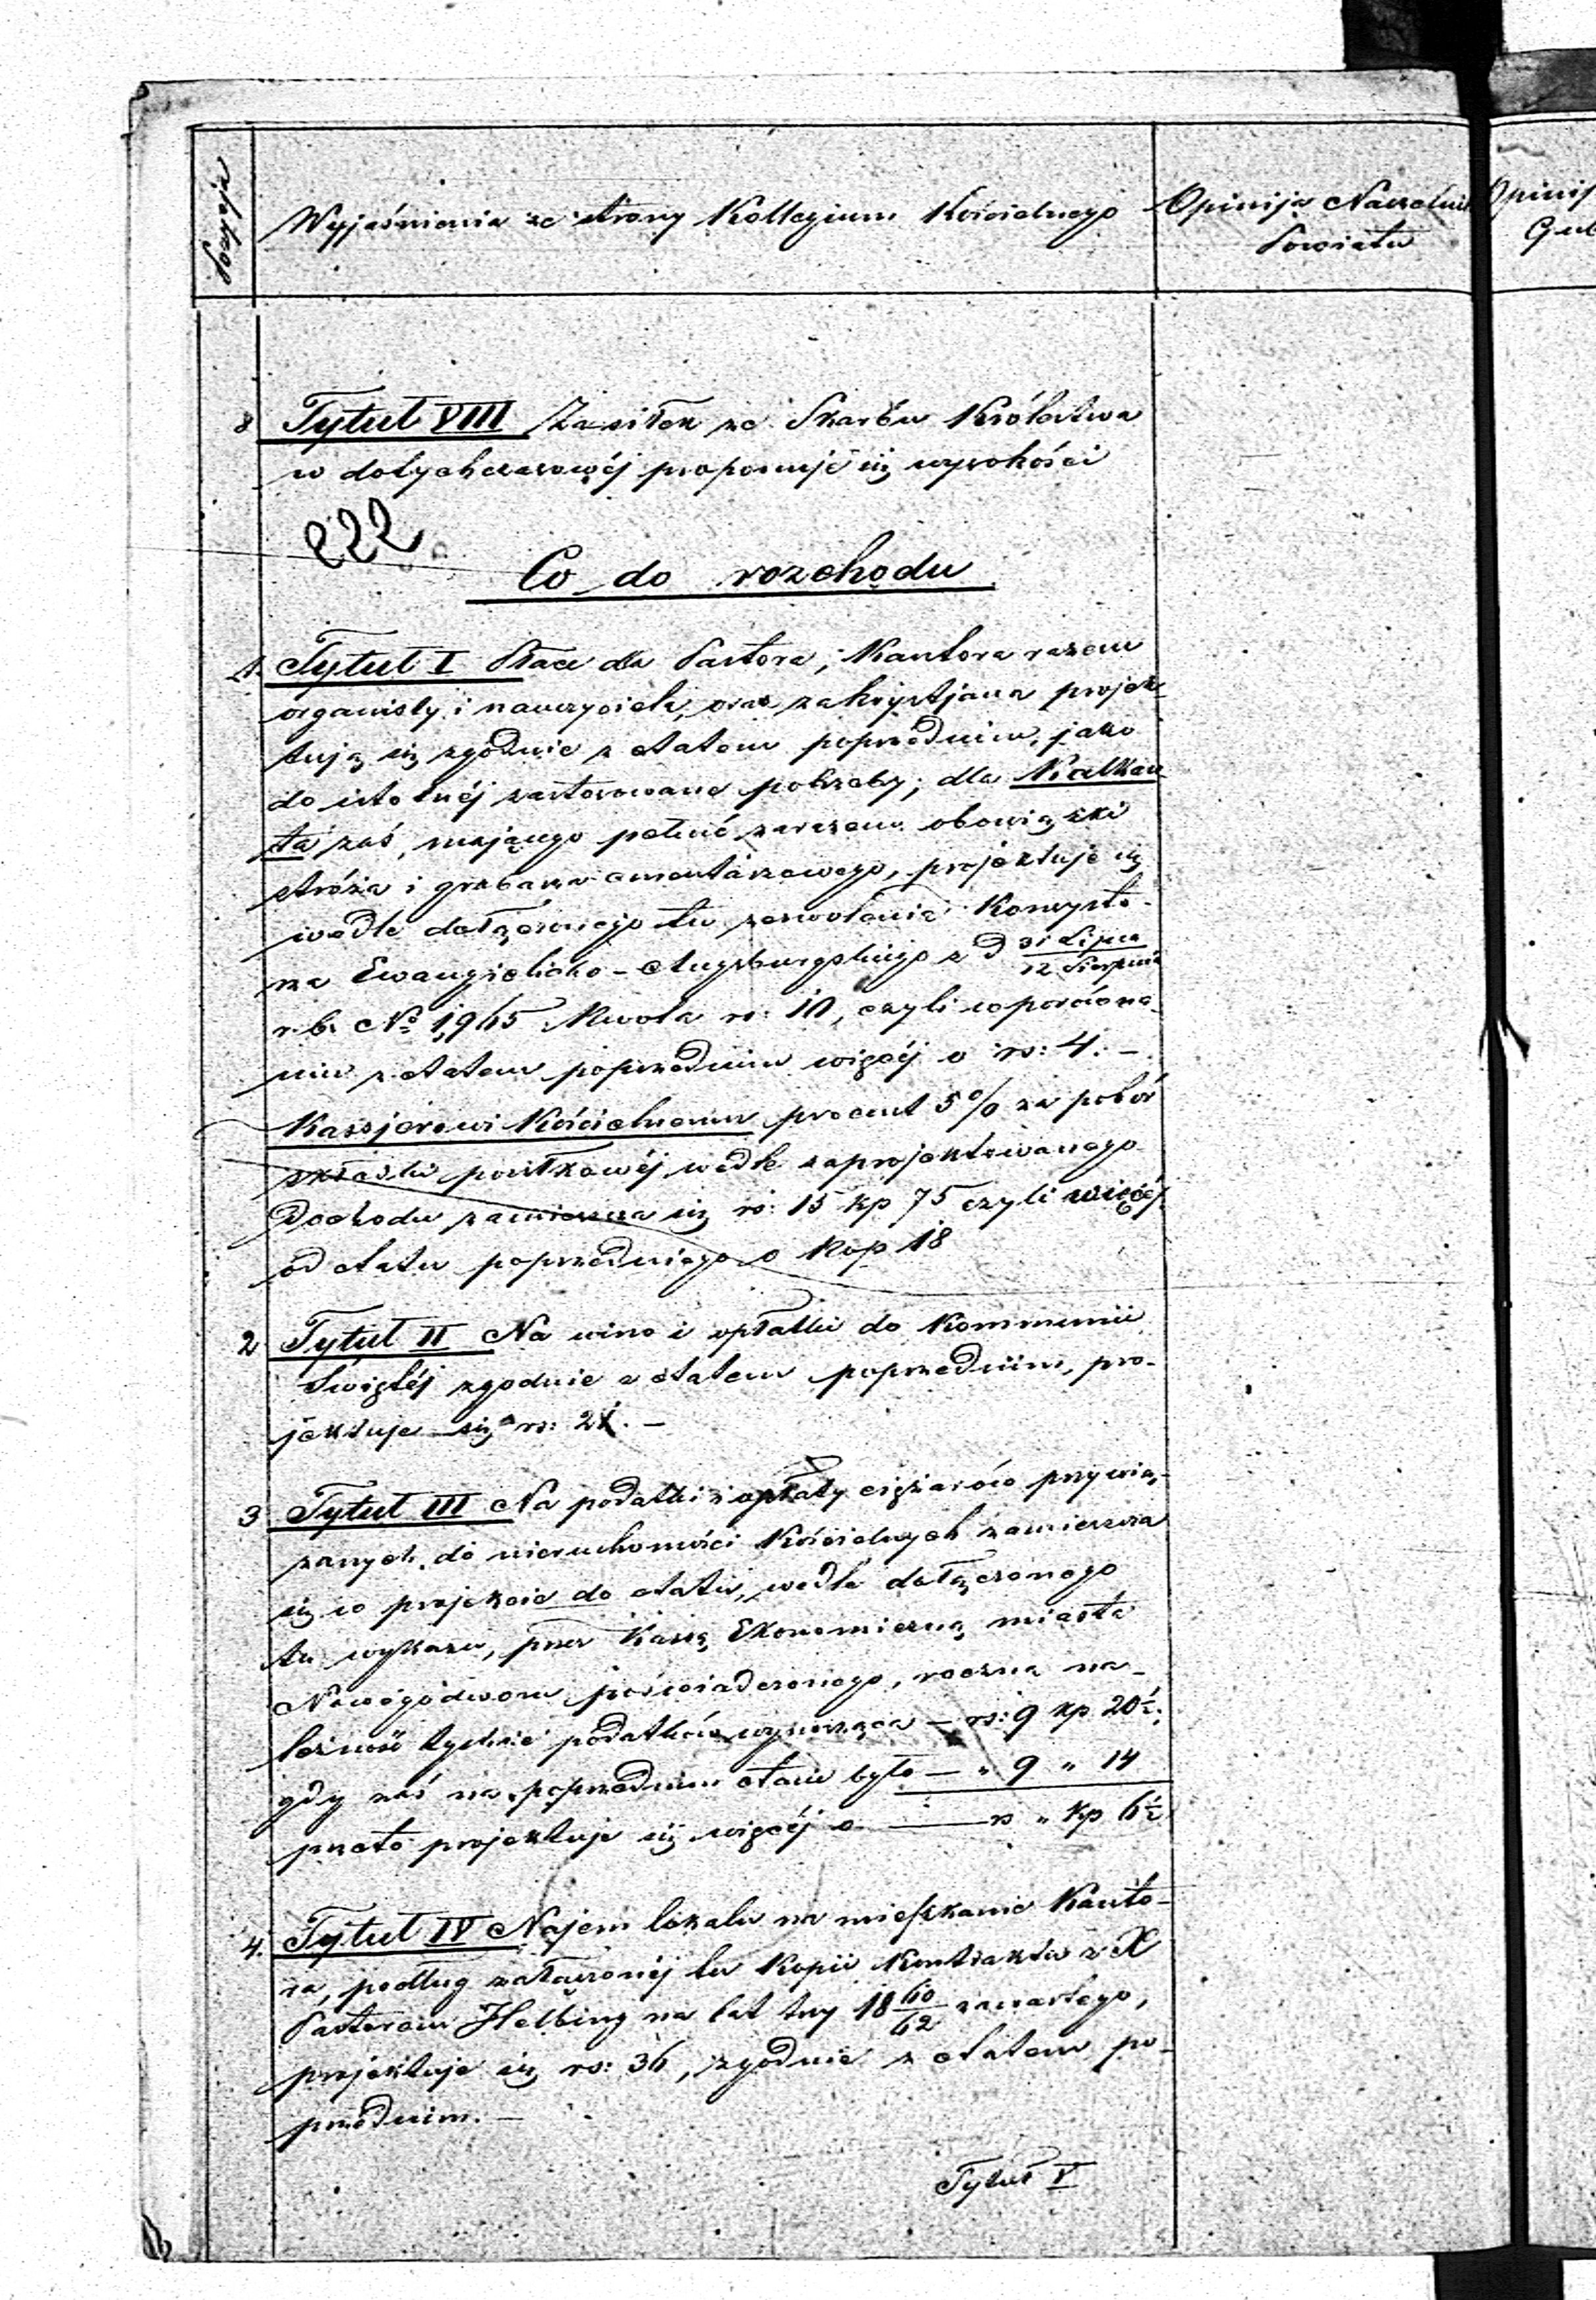 Pozycja
Wyjaśnienia ze strony Kollegium Kościelnego
Opinija Naczelnika
Powiatu
Opinij
Gub
8 Tytuł VIII Zasiłek ze Skarbu Królestwa
w dotychczasowéj proponuje się wysokości
222
Co do rozchodu
1. Tytuł I Płace dla Pastora, Kantora razem
organisty i nauczyciela, oraz zakrystjana projek-
tują się zgodnie z etatem poprzednim, jako
do istotnéj zastosowane potrzeby; dla Kalkan
ta zaś, mającego pełnić zarazem obowiązki
stróża i grabarza cmentarzowego, projektuje się
wedle dołączonego tu zezwolenia Konsysto-
rza Ewangielicko-Augsburgskiego z d 31 Lipca / 12 Sierpnia
r. b. No 1,965 kwota rs: 10, czyli w porówna-
niu z etatem poprzednim więcéj o rs: 4. –
Kassjerowi Kościelnemu procent 5% za pobór
składki posiłkowéj wedle zaprojektowanego
Dochodu zamieszcza się rs: 15 kp 75 czyli więcéj
od etatu poprzedniego o kop 18
2 Tytuł II Na wino i opłatki do Kommunii
Świętéj zgodnie z etatem poprzednim, pro-
jektuje się rs: 21. –
3 Tytuł III Na podatki i opłaty ciężarów przywią-
zanych do nieruchomości Kościelnych zamieszcza
się w projekcie do etatu, wedle dołączonego
tu wykazu, przez Kassę Ekonomiczną miasta
Nowegodworu poświadczonego, roczna na-
leżność tychże podatków wynosząca – rs: 9 kp 20½.
gdy zaś na poprzednim etacie było – " 9 " 14
przeto projektuje się więcéj o — rs " kp 6½
4. Tytuł IV Najem lokalu na mieszkanie Kanto-
ra, podług załączonéj tu Kopii Kontraktu z X
Pastorem Helbing na lat trzy 18 60/62 zawartego,
projektuje się rs: 36, zgodnie z etatem po-
przednim. –
Tytuł V